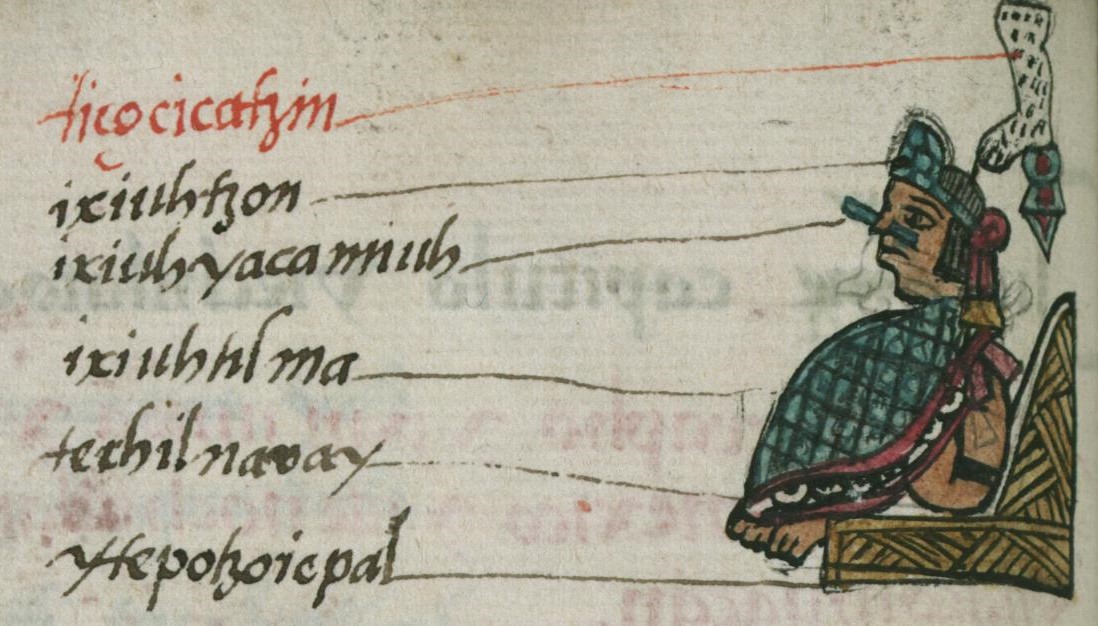 tiçocicatzin
ixiuhtzon
ixiuhyacamiuh
ixiuhtilma
techilnavay
ytepotzoicpal